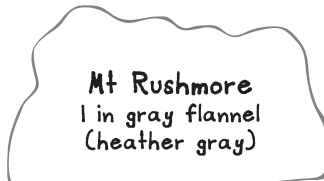 Mt Rushmore
1 in gray flannel
(heather gray)